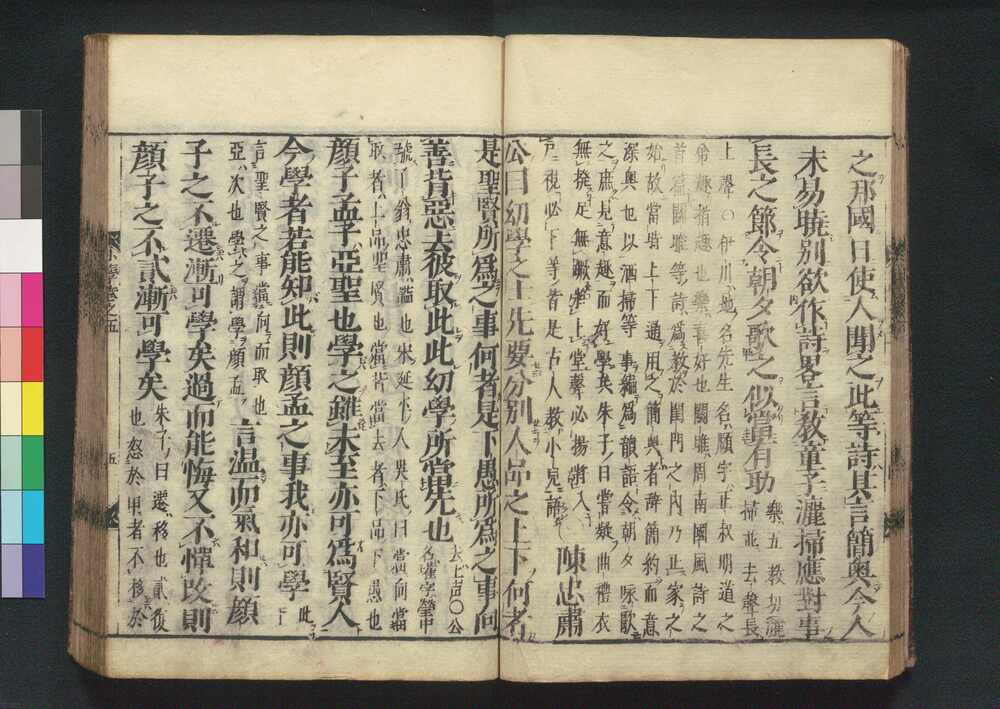 之邦國日使人聞之此等詩其言簡奧今人
未易曉別欲作詩畧言教童子灑掃應對事
長之節令朝夕歌之似當有助
樂五教切灑
掃並去聲長
上聲○伊川地名先生名頤字正叔明道之
弟趣指趣也樂喜好也關雎周南國風詩之
首篇關雎等詩爲教於閨門之内乃正家之
始故當時上下通用之簡奧者辭簡約而意
深奧也以洒掃等事編爲韻語令朝夕咏歌
之庶見意趣而好學矣朱子曰嘗疑曲禮衣
無撥足無蹶將上堂聲必揚將入
戸視必下等皆是古人教小兒語
陳忠肅
公曰幼學之士先要分別人品之上下何者
是聖賢所爲之事何者是下愚所爲之事向
善背惡去彼取此此幼學所當先也
去上声○公
名瓘字瑩中
號了翁忠肅謚也宋延平人吳氏曰當向當
取者上品聖賢也當背當去者下品下愚也
顏子孟子亞聖也學之雖未至亦可爲賢人
今學者若能知此則顏孟之事我亦可學
此下
言聖賢之事當向而取也
亞次也學之謂學顏孟
言温而氣和則顏
子之不遷漸可學矣過而能悔又不憚改則
顏子之不貳漸可學矣
朱子曰遷移也貳復
也怒於甲者不移於
五